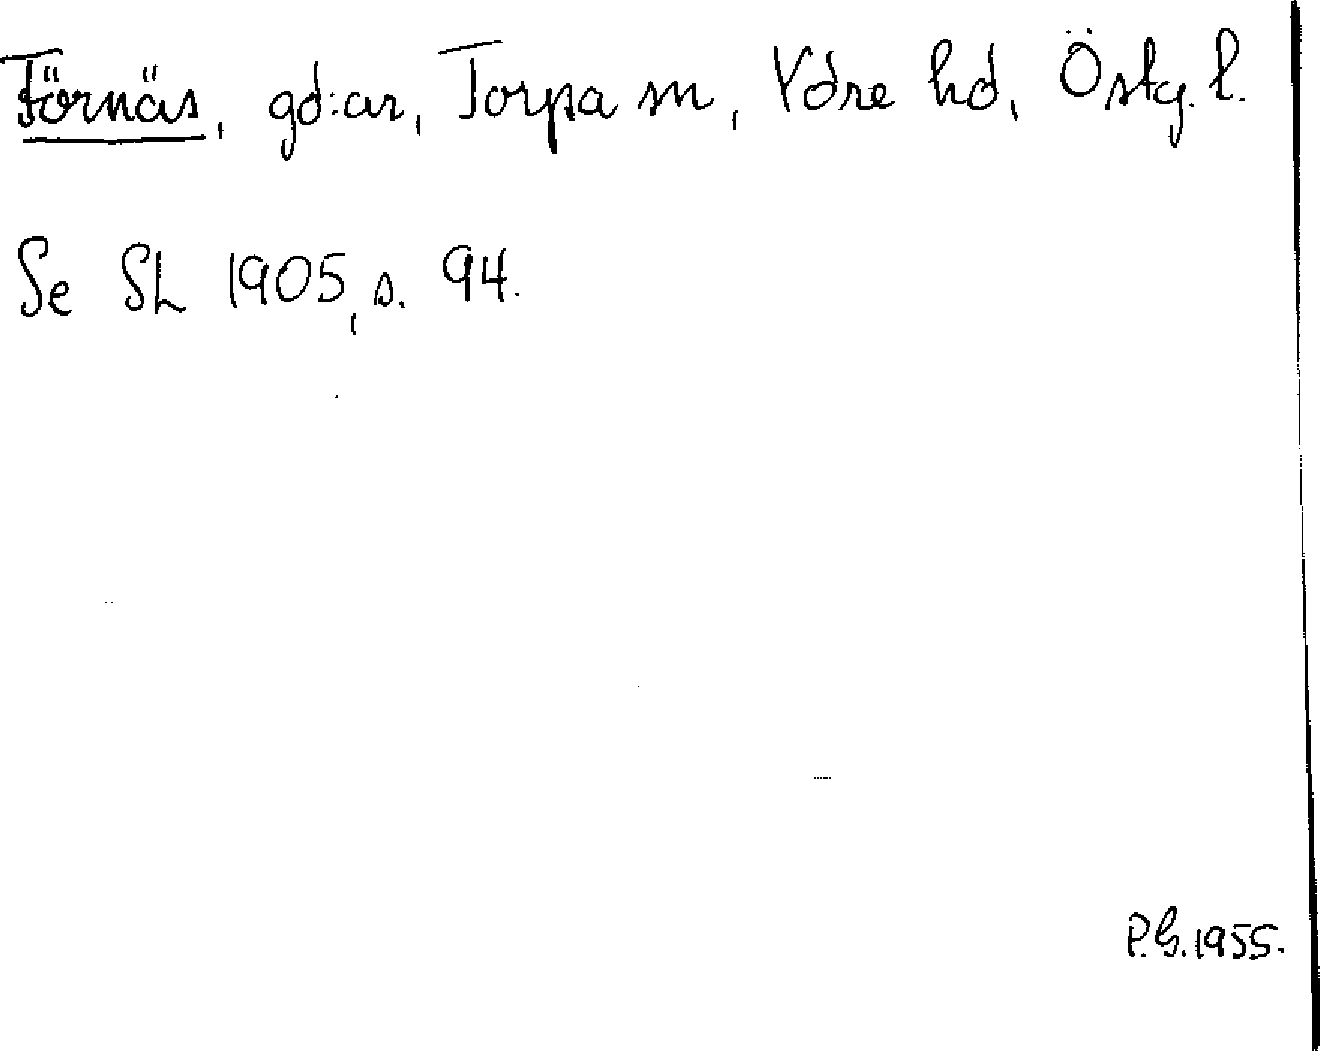 Förnäs, gd:ar, Torpa sn, Ydre hd, Östg. l.
Se SL 1905, s. 94.
P.G. 1955.